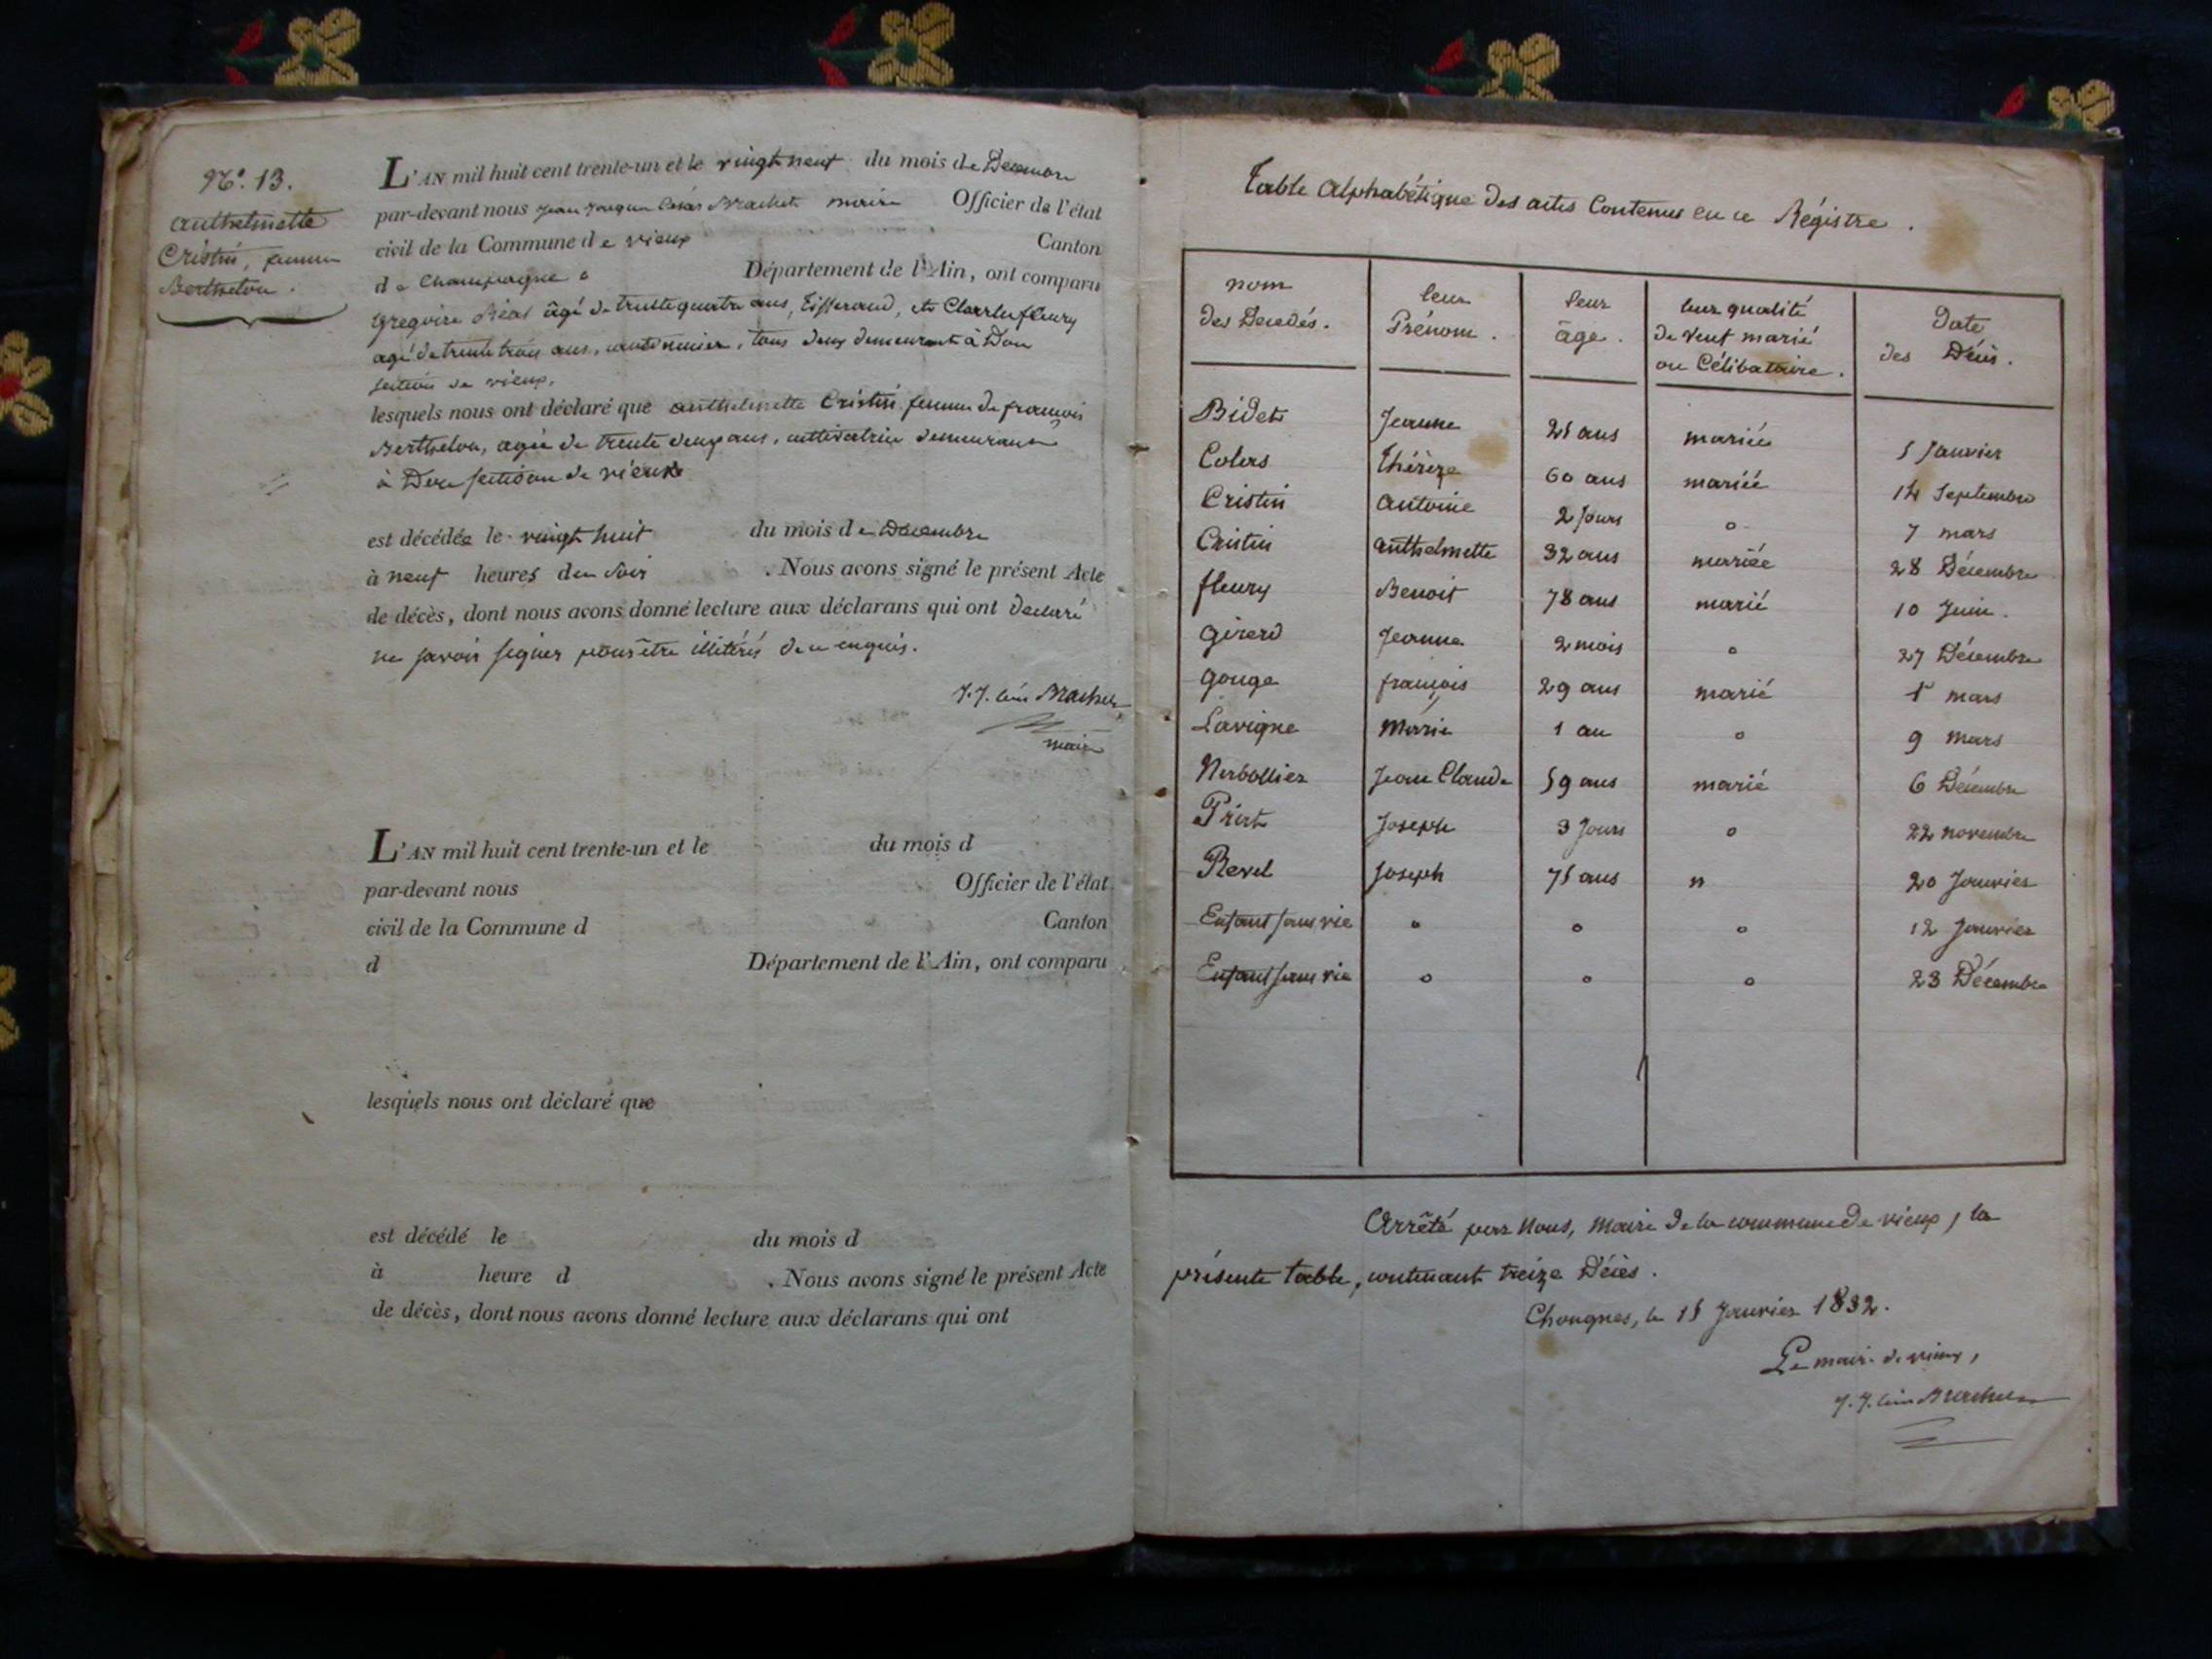 N.º 13.
anthelmette
Cristin, femme
Berthelon.
L'AN mil huit cent trente-un et le vingt neuf du mois de Décembre
par-devant nous jean joaquin César Brachet maire Officier de l'état
civil de la Commune de vieux Canton
de Champagne Département de l'Ain, ont comparu
Gregoire Béal âgé de trente quatre ans, Tisserand, et Charles fleury
agé de trente trois ans, cantonnier, tous deux demeurant à Don
section de vieux,
lesquels nous ont déclaré que anthelmette Cristin femme de françois
Berthelon, agée de trente deux ans, cultivatrice demeurant
à Don section de vieux
est décédée le vingt huit du mois de Décembre
à neuf heures du soir . Nous avons signé le présent Acte
de décès, dont nous avons donné lecture aux déclarans qui ont déclaré
ne savoir signer pour être illitérés de ce enquis.
J. J. César Brachet
maire
L'AN mil huit cent trente-un et le du mois d
par-devant nous Officier de l'état
civil de la Commune d Canton
d Département de l'Ain, ont comparu
lesquels nous ont déclaré que
est décédé le du mois d
à heure d . Nous avons signé le présent Acte
de décès, dont nous avons donné lecture aux déclarans qui ont
Table alphabétique des actes Contenus en ce Régistre.
nom des Décédés. leur Prénom. leur âge. leur qualité de veuf marié ou Célibataire. Date des Décès.
Bidet Jeanne 25 ans mariée 5 Janvier
Colas Thérèze 60 ans mariée 14 Septembre
Cristin antoine 2 Jours o 7 mars
Cristin anthelmette 32 ans mariée 28 Décembre
fleury Benoit 78 ans marié 10 Juin.
Girerd Jeanne 2 mois o 27 Décembre
Gouge françois 29 ans marié 5 mars
Lavigne Marie 1 an o 9 mars
Nerbollier Jean Claude 59 ans marié 6 Décembre
Prirt Joseph 3 Jours o 22 novembre
Revel Joseph 75 ans n 20 Janvier
Enfant sans vie o o o 12 Janvier
Enfant sans vie o o o 23 Décembre
Arrêté par Nous, Maire de la commune de vieux, la
présente table, contenant treize Décès.
Chongnes, le 15 Janvier 1832.
Le maire de vieux,
J. J. César Brachet